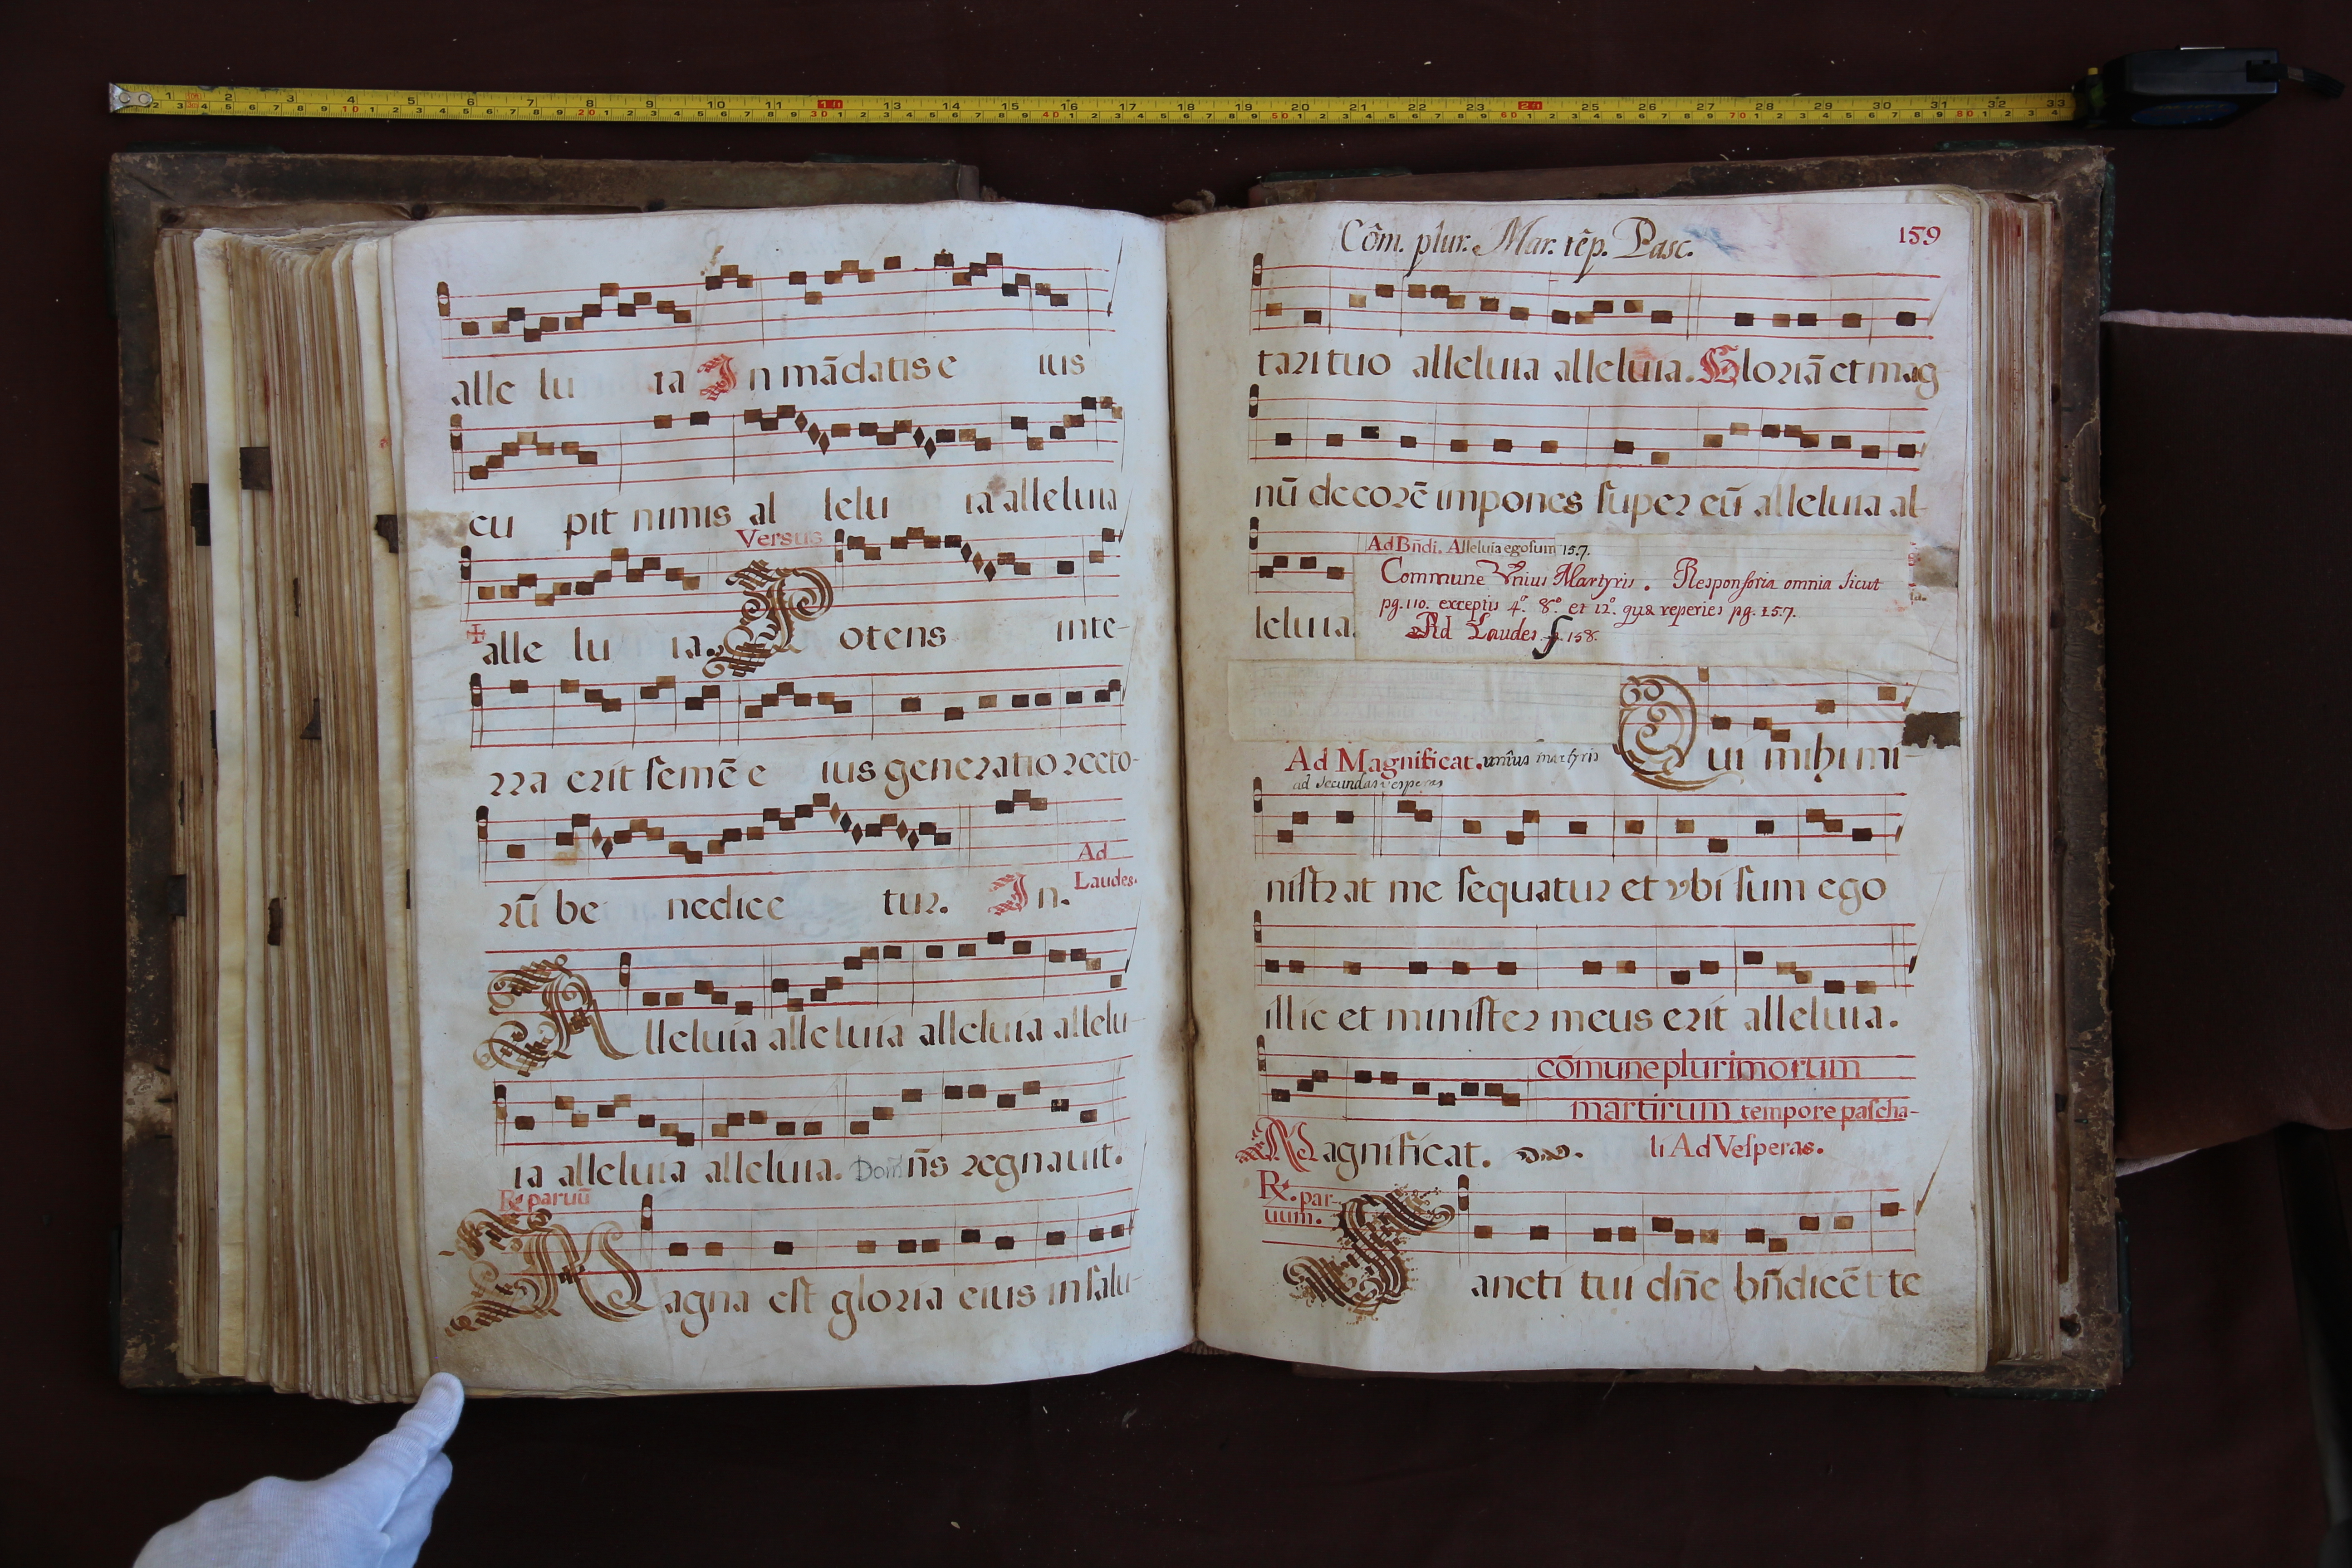 alle lu ia In mādatis e ius
cu pit nimis al lelu ia alleluia
Versus
alle lu ia. Potens inte-
rra erit semē e ius generatio recto-
rū be nedice tur. In.
Ad
Laudes.
Alleluia alleluia alleluia allelu-
ia alleluia alleluia. Dom̄ n̄s regnauit.
R. paruū
Magna est gloria eius in salu-
Cōm. plur. Mar. tēp. Pasc.
159
tari tuo alleluia alleluia. Gloriā et mag
nū decorē impones super eū alleluia al-
Ad Bñdi. Alleluia ego sum 157.
Commune Vnius Martyris. Responsoria omnia sicut
pg. 110. exceptis 4º. 8º. et 12º. quæ reperies pg. 157.
Ad Laudes f. 158.
leluia.
Ad Magnificat. unius martyris
ad secundas vesperas
Qui mihi mi-
nistrat me sequatur et vbi sum ego
illic et minister meus erit alleluia.
cōmune plurimorum
martirum tempore pascha-
li Ad Vesperas.
Magnificat.
R. par-
uum.
Sancti tui dn̄e bn̄dicēt te